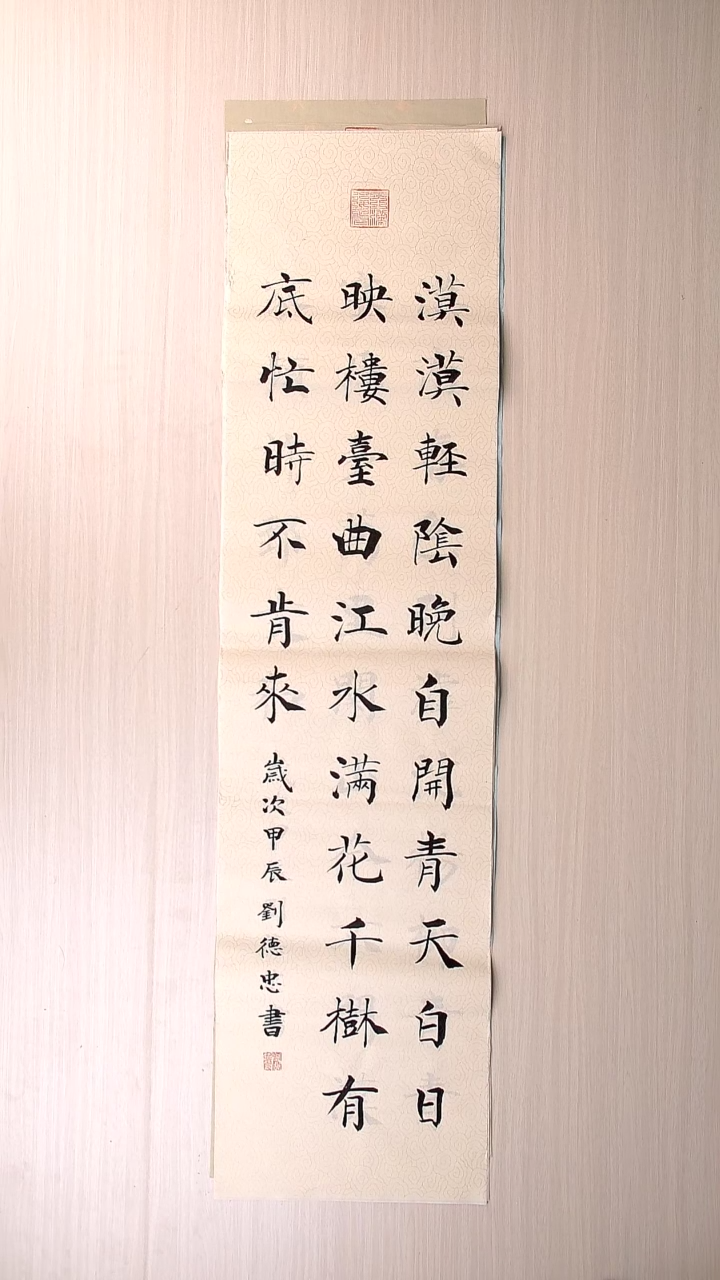 漠漠軽陰晚自開青天白日
映樓臺曲江水満花千樹有
底忙時不肯來
歲次甲辰劉德忠書